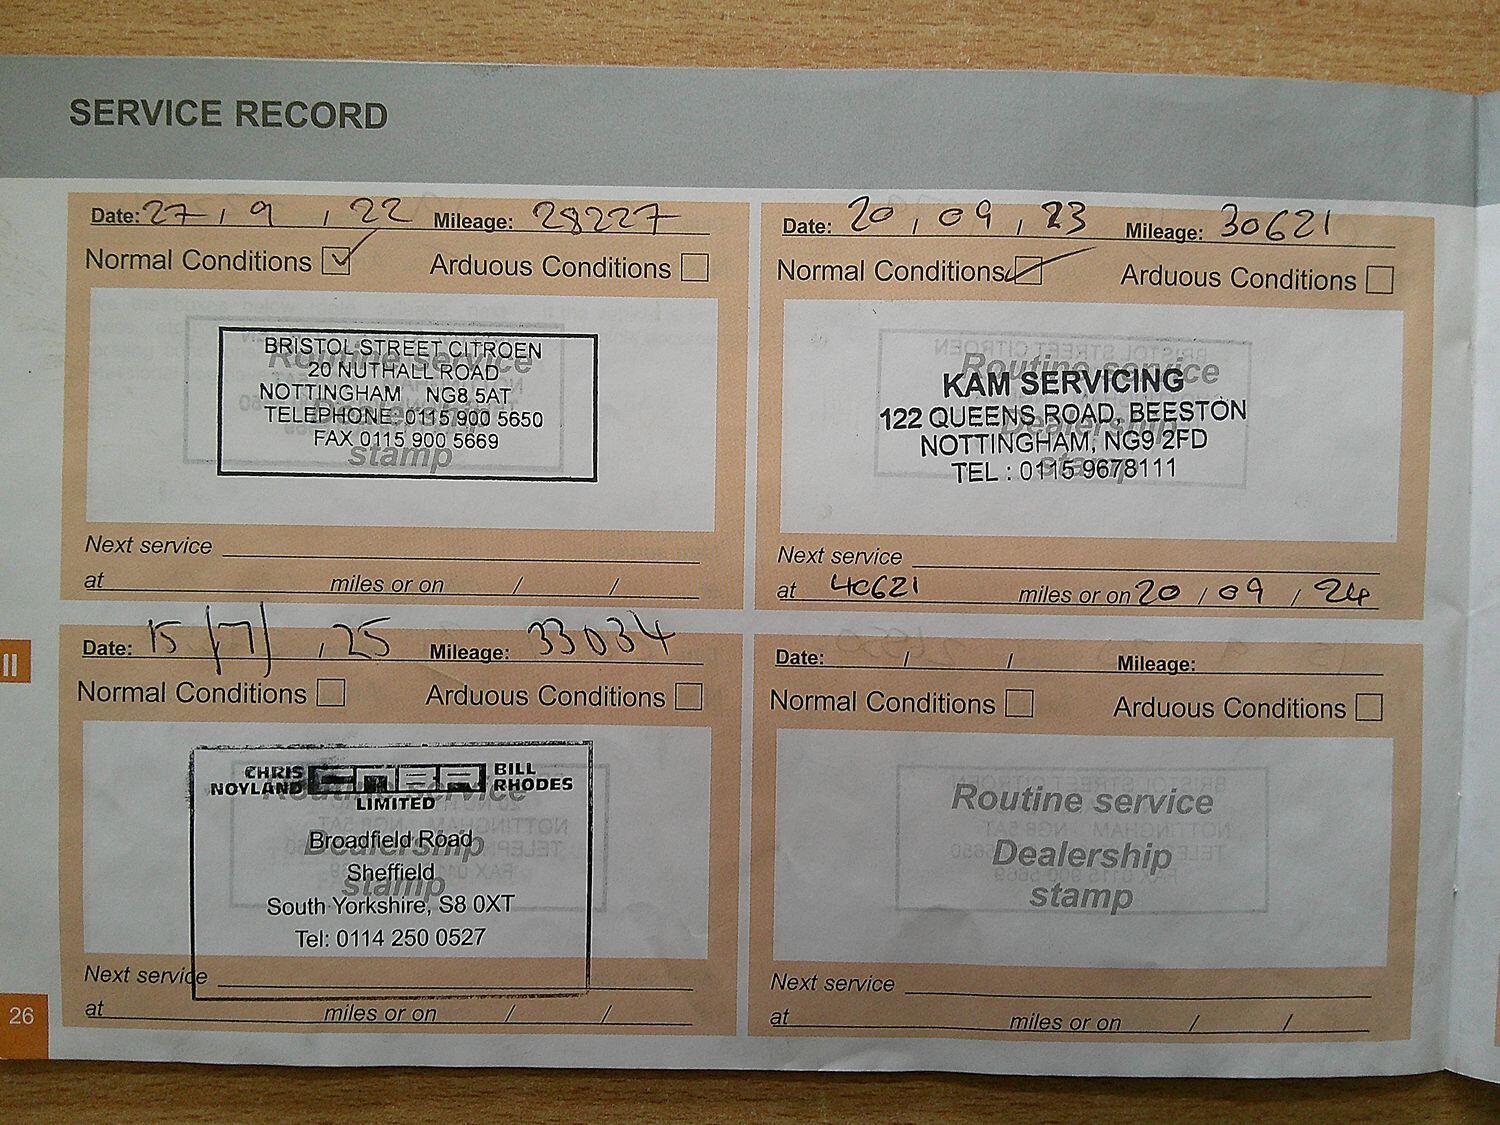 SERVICE RECORD
Date: 27 / 9 / 22 Mileage: 28227
Normal Conditions Arduous Conditions
BRISTOL STREET CITROEN
20 NUTHALL ROAD
NOTTINGHAM NG8 5AT
TELEPHONE: 0115 900 5650
FAX 0115 900 5669
Routine service
Dealership
stamp
Next service
at miles or on / /
Date: 20 / 09 / 23 Mileage: 30621
Normal Conditions Arduous Conditions
KAM SERVICING
122 QUEENS ROAD, BEESTON
NOTTINGHAM, NG9 2FD
TEL : 0115 9678111
Routine service
Dealership
stamp
Next service
at 40621 miles or on 20 / 09 / 24
II
Date: 15 / 7 / 25 Mileage: 33034
Normal Conditions Arduous Conditions
CHRIS NOYLAND CNBR BILL RHODES
LIMITED
Broadfield Road
Sheffield
South Yorkshire, S8 0XT
Tel: 0114 250 0527
Routine service
Dealership
stamp
Next service
at miles or on / /
Date: / / Mileage:
Normal Conditions Arduous Conditions
Routine service
Dealership
stamp
Next service
at miles or on / /
26